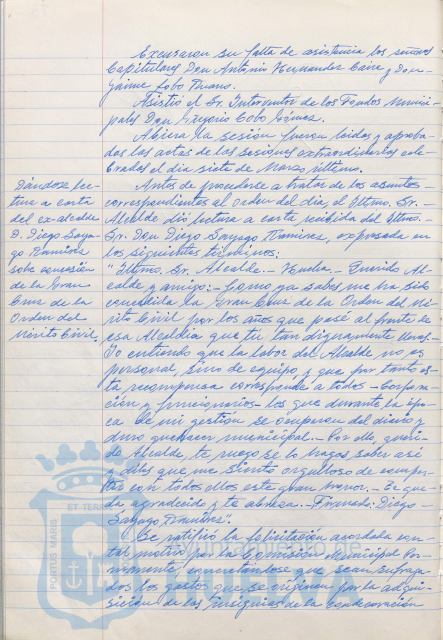 Excusaron su falta de asistencia los señores
Capitulares Don Antonio Hernandez Caire y Don
Jaime Lobo
Asistió el Sr. Interventor de los Fondos Munici-
pales Don Gregorio Cobo Gómez.
Abierta la sesión fueron leidas y aproba-
das las actas de las sesiones extraordinarias cele-
bradas el dia siete de Marzo último.
Dándose lec-
tura a carta
del ex-alcalde
D. Diego Saya-
go Ramírez
sobre concesión
de la Gran
Cruz de la
Orden del
Mérito Civil.
Antes de procederse a tratar de los asuntos
correspondientes al orden del dia, el Iltmo. Sr.
Alcalde dió lectura a carta recibida del Iltmo.
Sr. Don Diego Sayago Ramírez, expresada en
los siguientes términos:
"Iltmo. Sr. Alcalde.- Huelva.- Querido Al-
calde y amigo:- Como ya sabes me ha sido
concedida la Gran Cruz de la Orden del Mé-
rito Civil por los años que pasé al frente de
esa Alcaldia que tu tan dignamente llevas.-
Yo entiendo que la labor del Alcalde no es
personal, sino de equipo y que por tanto es-
ta recompensa corresponde a todos- Corpora-
ción y funcionarios- los que durante la épo-
ca de mi gestión se ocuparon del diario y
duro quehacer municipal.- Por ello, queri-
do Alcalde, te ruego se lo hagas saber así
y diles que me siento orgulloso de compar-
tir con todos ellos este gran honor.- Te que-
da agradecido y te abraza.- Firmado: Diego
Sayago Ramírez".
Se ratificó la felicitación acordada con
tal motivo por la Comisión Municipal Per-
manente, concretándose que sean sufraga-
dos los gastos que se originen por la adqui-
sición de las insignias de la condecoración
PORTUS MARIS
ET TERRAE
HUELVA